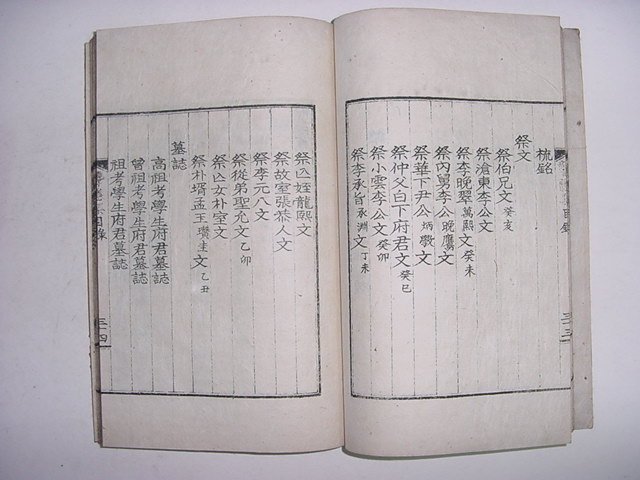 梳銘
祭文
祭伯兄文 癸亥
祭滄東李公文
祭李晩翠 萬熙 文 癸未
祭內舅李公 晩鷹 文
祭華下尹公 炳 文
祭仲父白下府君文 癸巳
祭小雲李公文 癸卯
祭李承旨 承淵 文 丁未
祭亾姪龍熙文
祭故室張恭人文
祭李元八文
祭從弟聖允文 乙卯
祭亾女朴室文
祭朴壻孟玉 瓚圭 文 乙丑
墓誌
高祖考學生府君墓誌
曾祖考學生府君墓誌
祖考學生府君墓誌
目錄